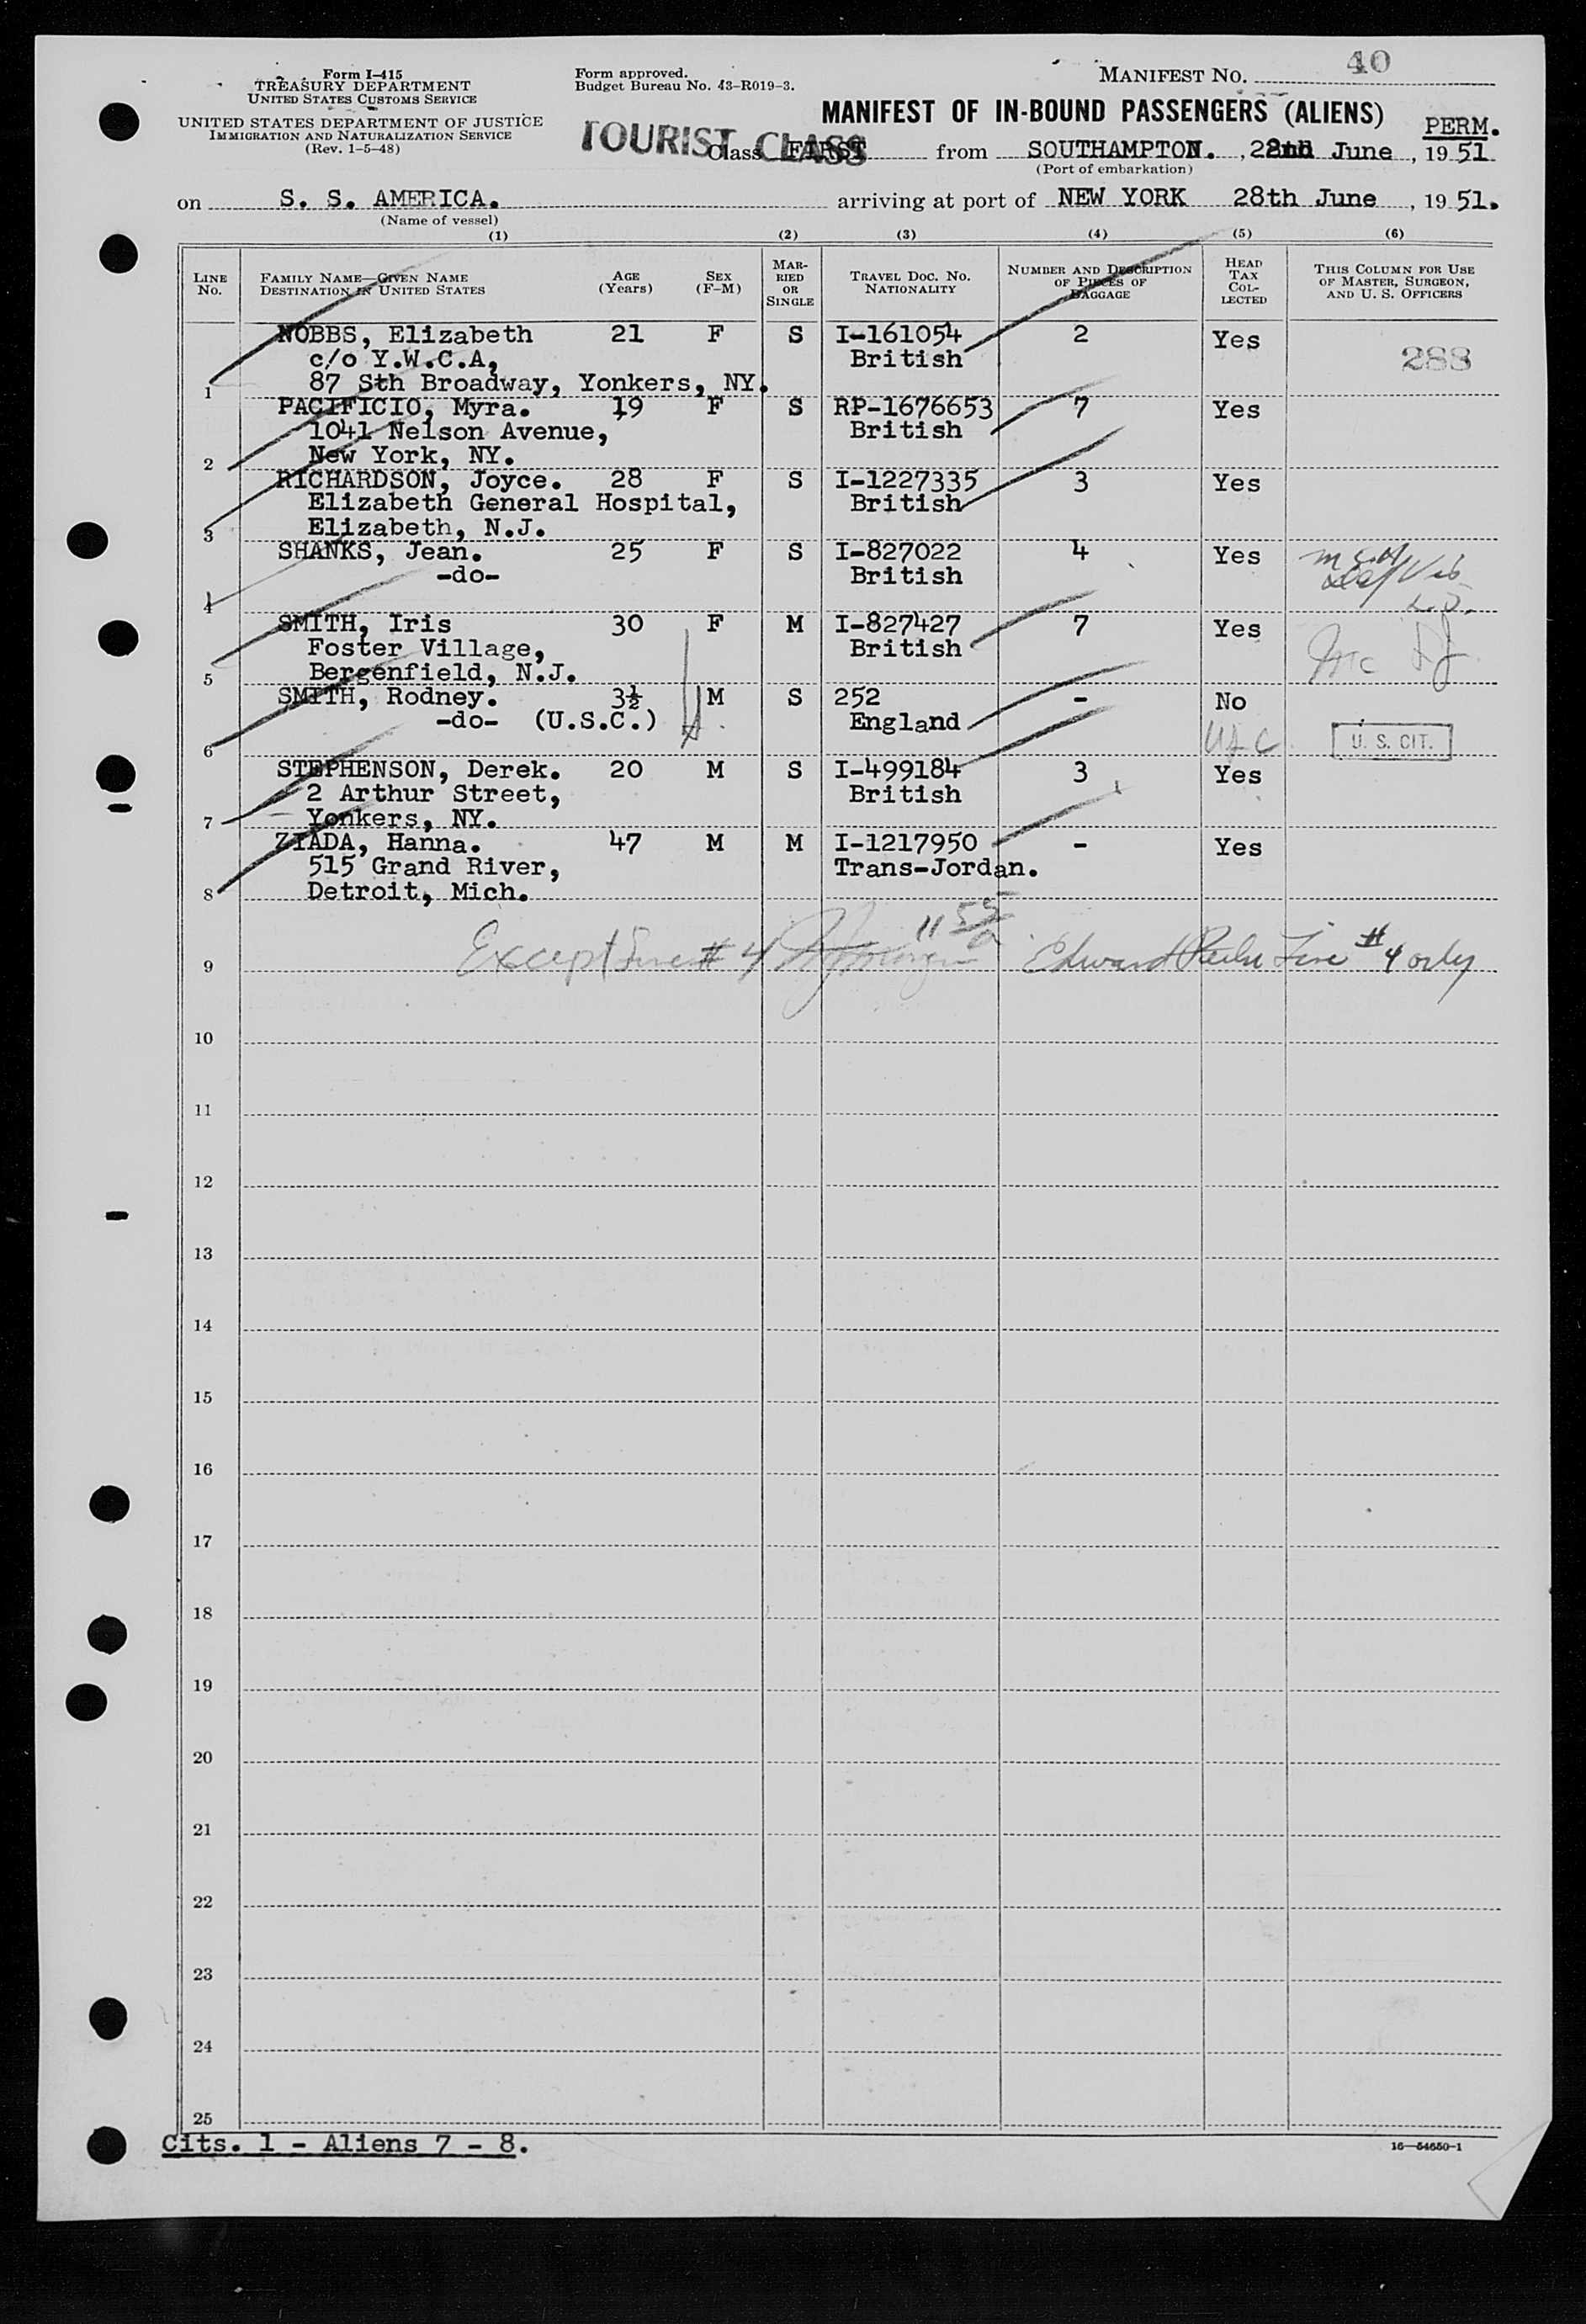 Form I-415
TREASURY DEPARTMENT
UNITED STATES CUSTOMS SERVICE
UNITED STATES DEPARTMENT OF JUSTICE
IMMIGRATION AND NATURALIZATION SERVICE
(Rev. 1-5-48)
Form approved.
Budget Bureau No. 43-R019-3.
MANIFEST NO. 40
MANIFEST OF IN-BOUND PASSENGERS (ALIENS)
PERM.
TOURIST CLASS
Class FIRST from SOUTHAMPTON. , 22nd June , 19 51
(Port of embarkation)
on S. S. AMERICA. arriving at port of NEW YORK 28th June , 19 51.
(Name of vessel)
(1) (2) (3) (4) (5) (6)
LINE No. FAMILY NAME—GIVEN NAME DESTINATION IN UNITED STATES AGE (Years) SEX (F-M) MARRIED OR SINGLE TRAVEL DOC. NO. NATIONALITY NUMBER AND DESCRIPTION OF PIECES OF BAGGAGE HEAD TAX COLLECTED THIS COLUMN FOR USE OF MASTER, SURGEON, AND U. S. OFFICERS
NOBBS, Elizabeth 21 F S I-161054 2 Yes
c/o Y.W.C.A, British 288
1 87 Sth Broadway, Yonkers, NY.
PACIFICIO, Myra. 19 F S RP-1676653 7 Yes
1041 Nelson Avenue, British
2 New York, NY.
RICHARDSON, Joyce. 28 F S I-1227335 3 Yes
Elizabeth General Hospital, British
3 Elizabeth, N.J.
SHANKS, Jean. 25 F S I-827022 4 Yes
-do- British
4
SMITH, Iris 30 F M I-827427 7 Yes
Foster Village, British
5 Bergenfield, N.J.
SMITH, Rodney. 3½ M S 252 - No
-do- (U.S.C.) England
6 U.S. CIT.
STEPHENSON, Derek. 20 M S I-499184 3 Yes
2 Arthur Street, British
7 Yonkers, NY.
ZIADA, Hanna. 47 M M I-1217950 - Yes
515 Grand River, Trans-Jordan.
8 Detroit, Mich.
9 Except Line # 4 Edward Line # 4 only
10
11
12
13
14
15
16
17
18
19
20
21
22
23
24
25
Cits. 1 - Aliens 7 - 8.
16—54650-1